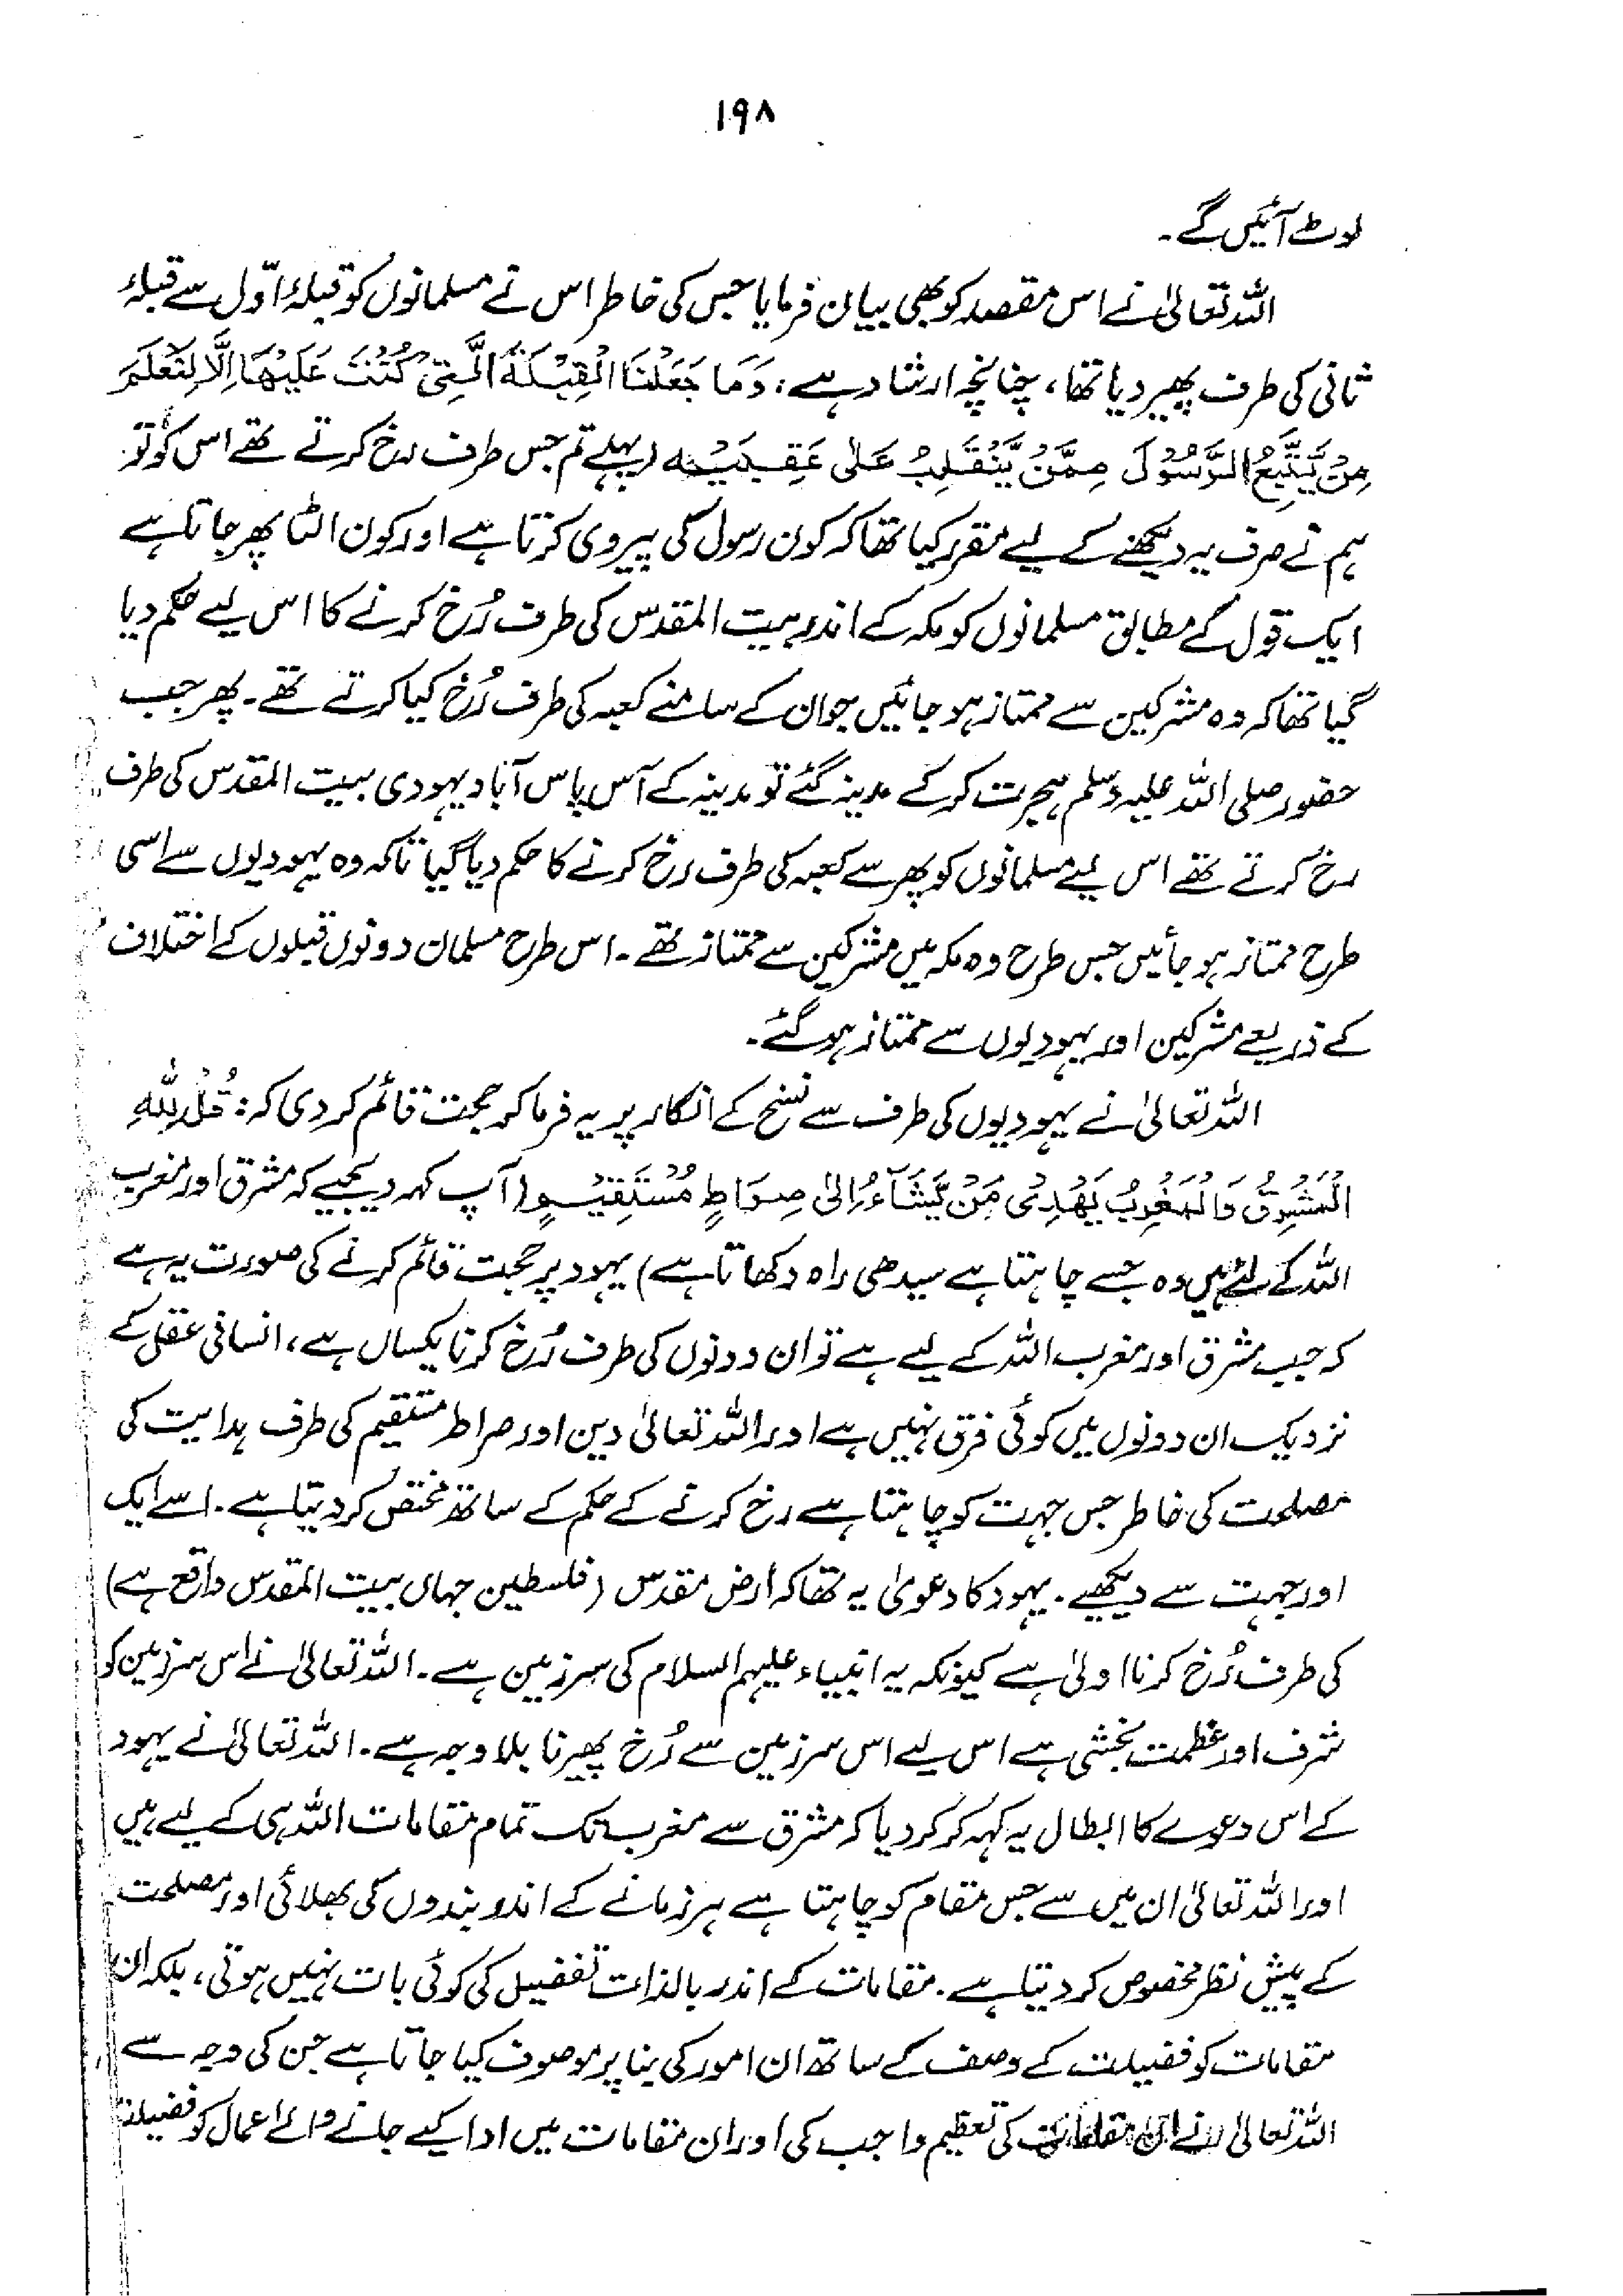 ۱۹۸
لوٹ آئیں گے۔
اللہ تعالیٰ نے اس مقصد کو بھی بیان فرمایا جس کی خاطر اس نے مسلمانوں کو قبلۂ اوّل سے قبلۂ
ثانی کی طرف پھیر دیا تھا، چنانچہ ارشاد ہے: وَمَا جَعَلْنَا الْقِبْلَةَ الَّتِیْ كُنْتَ عَلَيْهَا اِلَّا لِنَعْلَمَ
مِنْ يَّتَّبِعُ الرَّسُوْلَ مِمَّنْ يَّنْقَلِبُ عَلٰى عَقِبَيْهِ (پہلے تم جس طرف رخ کرتے تھے اس کو تو
ہم نے صرف یہ دیکھنے کے لیے مقرر کیا تھا کہ کون رسول کی پیروی کرتا ہے اور کون الٹا پھر جاتا ہے
ایک قول کے مطابق مسلمانوں کو مکہ کے اندر بیت المقدس کی طرف رُخ کرنے کا اس لیے حکم دیا
گیا تھا کہ وہ مشرکین سے ممتاز ہو جائیں جو ان کے سامنے کعبہ کی طرف رُخ کیا کرتے تھے۔ پھر جب
حضور صلی اللہ علیہ وسلم ہجرت کر کے مدینہ گئے تو مدینہ کے آس پاس آباد یہودی بیت المقدس کی طرف
رخ کرتے تھے اس لیے مسلمانوں کو پھر سے کعبہ کی طرف رخ کرنے کا حکم دیا گیا تاکہ وہ یہودیوں سے اسی
طرح ممتاز ہو جائیں جس طرح وہ مکہ میں مشرکین سے ممتاز تھے۔ اس طرح مسلمان دونوں قبلوں کے اختلاف
کے ذریعے مشرکین اور یہودیوں سے ممتاز ہو گئے۔
اللہ تعالیٰ نے یہودیوں کی طرف سے نسخ کے انکار پر یہ فرما کر حجت قائم کر دی کہ: قُلْ لِلّٰهِ
الْمَشْرِقُ وَالْمَغْرِبُ يَهْدِیْ مَنْ يَّشَآءُ اِلٰى صِرَاطٍ مُسْتَقِيْمٍ (آپ کہہ دیجیے کہ مشرق اور مغرب
اللہ کے لئے ہیں وہ جسے چاہتا ہے سیدھی راہ دکھاتا ہے) یہود پر حجت قائم کرنے کی صورت یہ ہے
کہ جب مشرق اور مغرب اللہ کے لیے ہے تو ان دونوں کی طرف رُخ کرنا یکساں ہے، انسانی عقل کے
نزدیک ان دونوں میں کوئی فرق نہیں ہے اور اللہ تعالیٰ دین اور صراط مستقیم کی طرف ہدایت کی
مصلحت کی خاطر جس جہت کو چاہتا ہے رخ کرنے کے حکم کے ساتھ مختص کر دیتا ہے۔ اسے ایک
اور جہت سے دیکھیے۔ یہود کا دعویٰ یہ تھا کہ ارض مقدس (فلسطین جہاں بیت المقدس واقع ہے)
کی طرف رُخ کرنا اولیٰ ہے کیونکہ یہ انبیاء علیہم السلام کی سرزمین ہے۔ اللہ تعالیٰ نے اس سرزمین کو
شرف اور عظمت بخشی ہے اس لیے اس سرزمین سے رُخ پھیرنا بلا وجہ ہے۔ اللہ تعالیٰ نے یہود
کے اس دعوے کا ابطال یہ کہہ کر کر دیا کہ مشرق سے مغرب تک تمام مقامات اللہ ہی کے لیے ہیں
اور اللہ تعالیٰ ان میں سے جس مقام کو چاہتا ہے ہر زمانے کے اندر بندوں کی بھلائی اور مصلحت
کے پیش نظر مخصوص کر دیتا ہے۔ مقامات کے اندر بالذات تفضیل کی کوئی بات نہیں ہوتی، بلکہ ان
مقامات کو فضیلت کے وصف کے ساتھ ان امور کی بنا پر موصوف کیا جاتا ہے جن کی وجہ سے
اللہ تعالیٰ نے ان مقامات کی تعظیم واجب کی اور ان مقامات میں ادا کیے جانے والے اعمال کو فضیلت